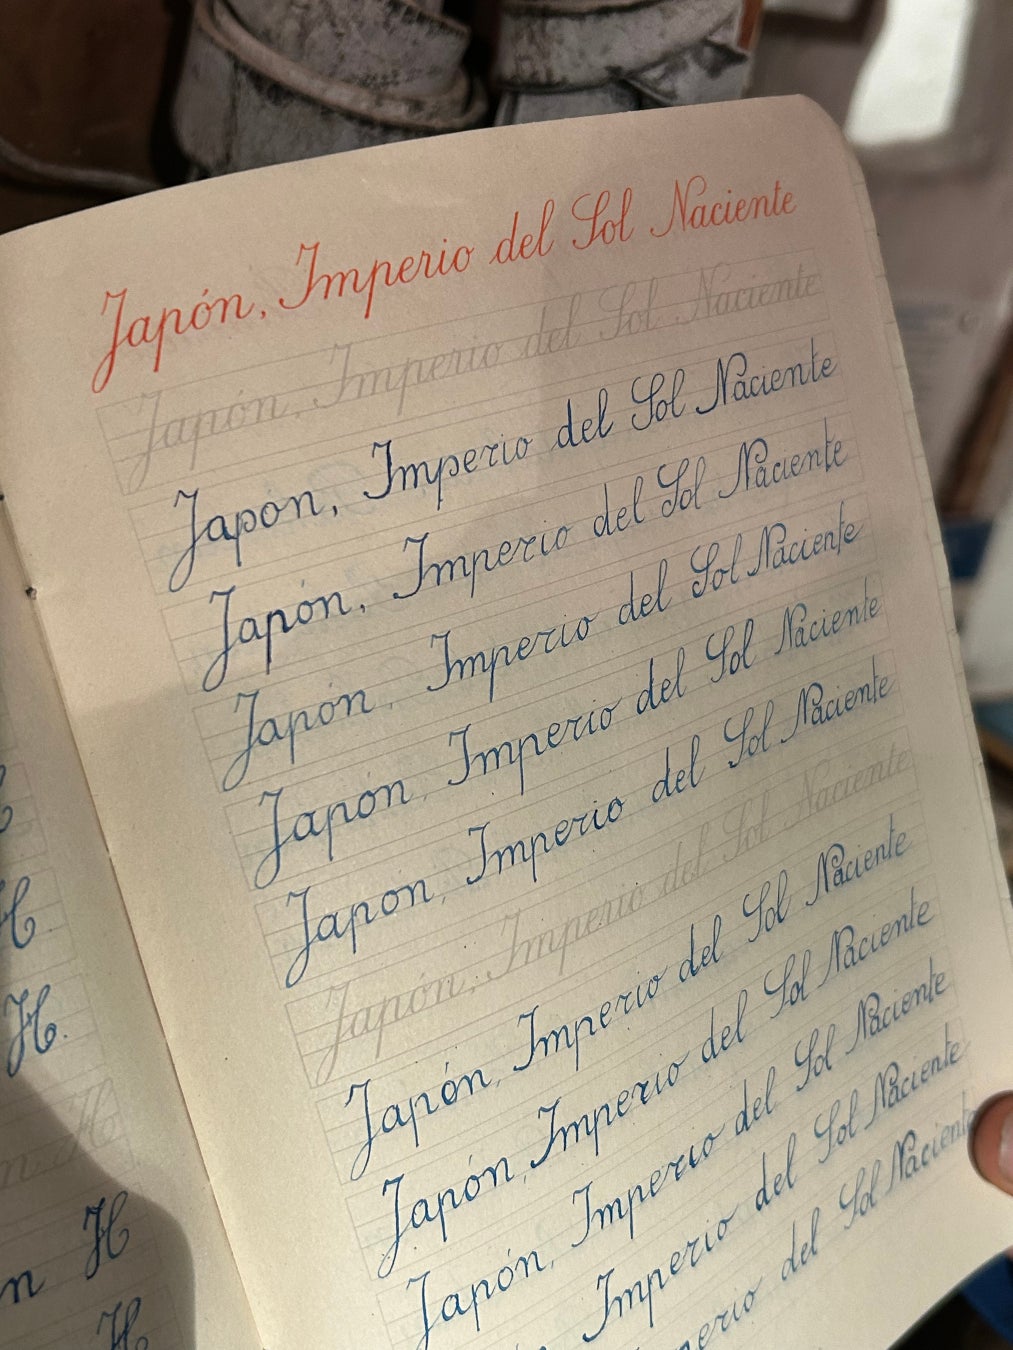 H
H.
n H
H
Japón, Imperio del Sol Naciente
Japón, Imperio del Sol Naciente
Japon, Imperio del Sol Naciente
Japón, Imperio del Sol Naciente
Japón, Imperio del Sol Naciente
Japón, Imperio del Sol Naciente
Japon, Imperio del Sol Naciente
Japón, Imperio del Sol Naciente
Japón, Imperio del Sol Naciente
Japón, Imperio del Sol Naciente
Japón, Imperio del Sol Naciente
Imperio del Sol Naciente
perio del Sol Naciente